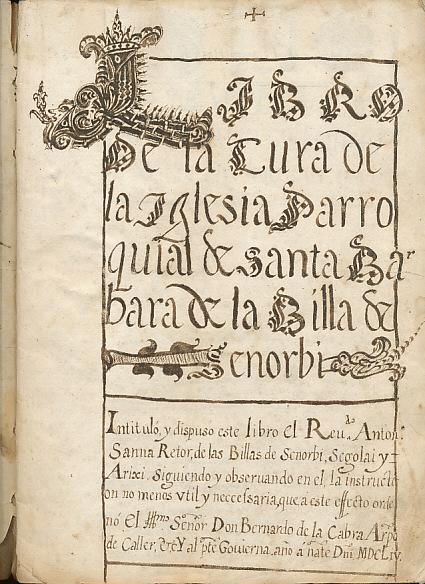 LIBRO
De la Cura de
la Iglesia Parro
quial de Santa Bar
bara de la Billa de
Senorbi
Intituló, y dispuso este libro el Reu.do Anton.o
Sanna Retor, de las Billas de Senorbi, Segolai y
Arixi. Siguiendo y obseruando en el, la instructi
on no menos vtil y necessaria, que a este effecto orde
nó el Illmo Señor Don Bernardo de la Cabra Arpo
de Caller, &c Y al pnte Gouierna, año a nate Dni MDCLiv.